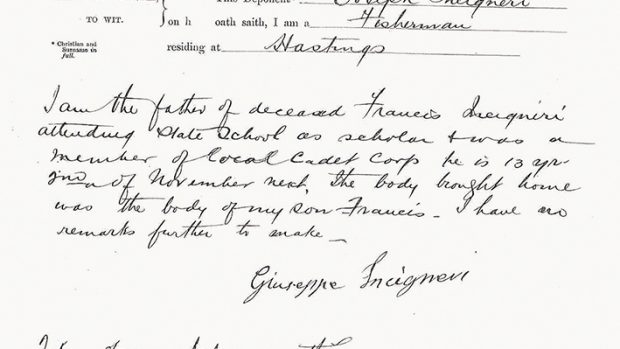 This Deponent Joseph Incigneri
TO WIT. on h oath saith, I am a Fisherman
* Christian and
Surname in
full.
residing at Hastings
I am the father of deceased Francis Incigneri
attending State School as scholar & was a
member of Local Cadet Corp he is 13 yrs
of November next, The body brought home
was the body of my son Francis - I have no
remarks further to make -
Giuseppe Incigneri